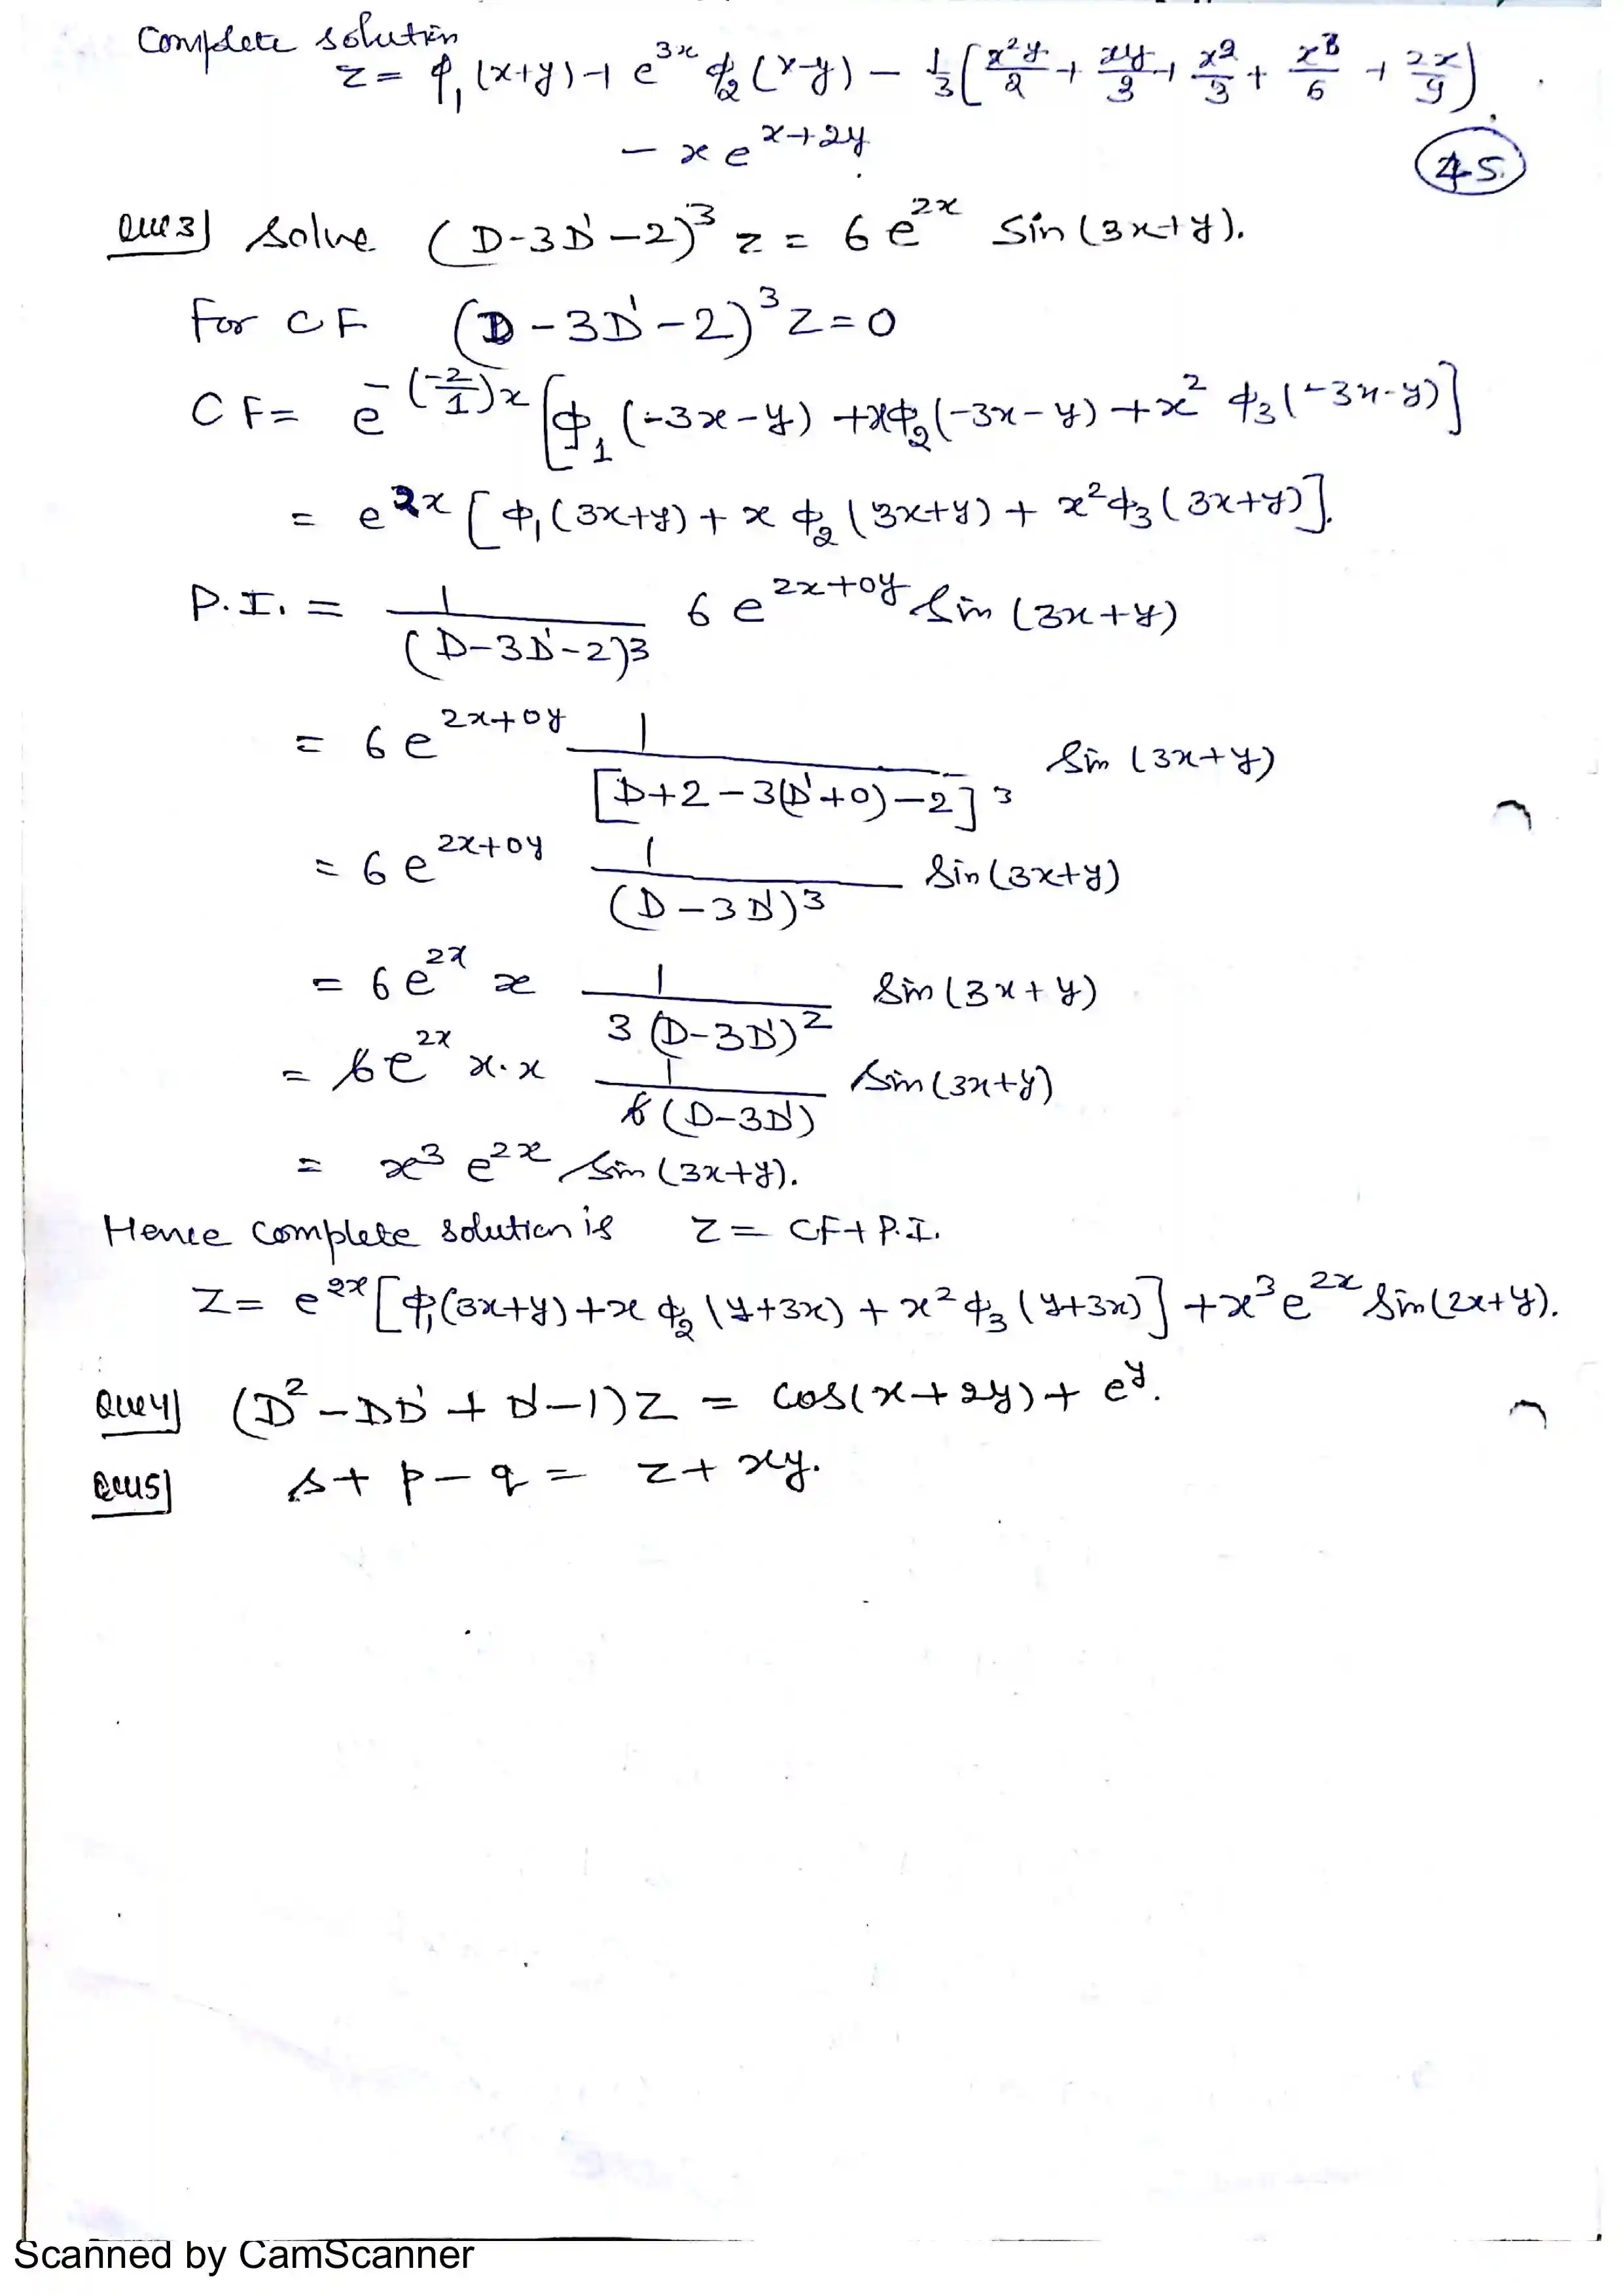 Complete solution
z = φ₁(x+y) + e^{3x} φ₂(x-y) - 1/3 (x²y/2 + xy/3 + x²/3 + x³/6 + 2x/9)
- x e^{x+2y}.
45.
Que 3] Solve (D-3D'-2)³ z = 6 e^{2x} Sin(3x+y).
For CF (D-3D'-2)³ Z = 0
CF = e^{-(-2/1)x} [φ₁(-3x-y) + xφ₂(-3x-y) + x² φ₃(-3x-y)]
= e^{2x} [φ₁(3x+y) + x φ₂(3x+y) + x² φ₃(3x+y)].
P.I. = 1/(D-3D'-2)³ 6 e^{2x+0y} Sin(3x+y)
= 6 e^{2x+0y} 1/[D+2-3(D'+0)-2]³ Sin(3x+y)
= 6 e^{2x+0y} 1/(D-3D')³ Sin(3x+y)
= 6 e^{2x} x 1/3(D-3D')² Sin(3x+y)
= 6 e^{2x} x.x 1/6(D-3D') Sin(3x+y)
= x³ e^{2x} Sin(3x+y).
Hence Complete solution is Z = CF + P.I.
Z = e^{2x} [φ₁(3x+y) + x φ₂(y+3x) + x² φ₃(y+3x)] + x³ e^{2x} Sin(2x+y).
Que 4] (D² - DD' + D' - 1) Z = Cos(x+2y) + e^y.
Que 5] s + p - q = z + xy.
Scanned by CamScanner